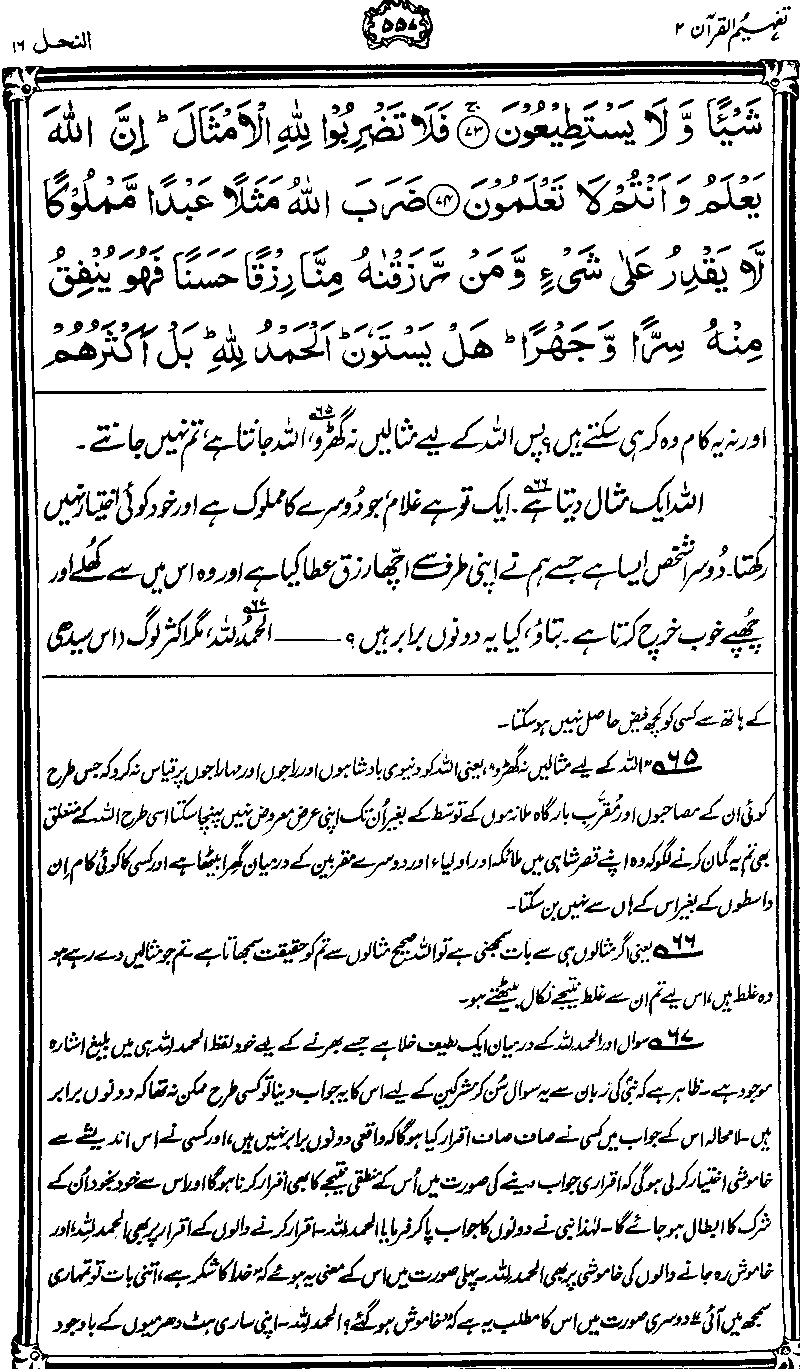 تفہیم القرآن ۲
۵۵۸
النحل ۱۶
شَيْـًٔا وَّ لَا يَسْتَطِيْعُوْنَ ﴿۷۳﴾ فَلَا تَضْرِبُوْا لِلّٰهِ الْاَمْثَالَ ؕ اِنَّ اللّٰهَ
يَعْلَمُ وَ اَنْتُمْ لَا تَعْلَمُوْنَ ﴿۷۴﴾ ضَرَبَ اللّٰهُ مَثَلًا عَبْدًا مَّمْلُوْكًا
لَّا يَقْدِرُ عَلٰى شَيْءٍ وَّ مَنْ رَّزَقْنٰهُ مِنَّا رِزْقًا حَسَنًا فَهُوَ يُنْفِقُ
مِنْهُ سِرًّا وَّ جَهْرًا ؕ هَلْ يَسْتَوٗنَ ؕ اَلْحَمْدُ لِلّٰهِ ؕ بَلْ اَكْثَرُهُمْ
اور نہ یہ کام وہ کر ہی سکتے ہیں؟ پس اللہ کے لیے مثالیں نہ گھڑو،۶۵ اللہ جانتا ہے، تم نہیں جانتے۔
اللہ ایک مثال دیتا ہے۶۶۔ ایک تو ہے غلام، جو دُوسرے کا مملوک ہے اور خود کوئی اختیار نہیں
رکھتا۔ دُوسرا شخص ایسا ہے جسے ہم نے اپنی طرف سے اچھا رزق عطا کیا ہے اور وہ اس میں سے کھُلے اور
چھُپے خوب خرچ کرتا ہے۔ بتاؤ، کیا یہ دونوں برابر ہیں؟ ——— الحمدُللہ،۶۷ مگر اکثر لوگ (اس سیدھی
کے ہاتھ سے کسی کو کچھ فیض حاصل نہیں ہو سکتا۔
۶۵ "اللہ کے لیے مثالیں نہ گھڑو"، یعنی اللہ کو دنیوی بادشاہوں اور راجوں اور مہاراجوں پر قیاس نہ کرو کہ جس طرح
کوئی ان کے مصاحبوں اور مُقرَّب بارگاہ ملازموں کے توسّط کے بغیر اُن تک اپنی عرض معروض نہیں پہنچا سکتا اسی طرح اللہ کے متعلق
بھی تم یہ گمان کرنے لگو کہ وہ اپنے قصر شاہی میں ملائکہ اور اولیاء اور دوسرے مقربین کے درمیان گھرا بیٹھا ہے اور کسی کا کوئی کام اِن
واسطوں کے بغیر اس کے ہاں سے نہیں بن سکتا۔
۶۶ یعنی اگر مثالوں ہی سے بات سمجھنی ہے تو اللہ صحیح مثالوں سے تم کو حقیقت سمجھاتا ہے۔ تم جو مثالیں دے رہے ہو
وہ غلط ہیں، اس لیے تم ان سے غلط نتیجے نکال بیٹھتے ہو۔
۶۷ سوال اور الحمدللہ کے درمیان ایک لطیف خلا ہے جسے بھرنے کے لیے خود لفظ الحمدللہ ہی میں بلیغ اشارہ
موجود ہے۔ ظاہر ہے کہ نبیؐ کی زبان سے یہ سوال سُن کر مشرکین کے لیے اس کا یہ جواب دینا تو کسی طرح ممکن نہ تھا کہ دونوں برابر
ہیں۔ لا محالہ اس کے جواب میں کسی نے صاف صاف اقرار کیا ہو گا کہ واقعی دونوں برابر نہیں ہیں، اور کسی نے اس اندیشے سے
خاموشی اختیار کر لی ہو گی کہ اقراری جواب دینے کی صورت میں اُس کے منطقی نتیجے کا بھی اقرار کرنا ہو گا اور اس سے خود بخود اُن کے
شرک کا ابطال ہو جائے گا۔ لہٰذا نبی نے دونوں کا جواب پا کر فرمایا الحمدللہ۔ اقرار کرنے والوں کے اقرار پر بھی الحمدللہ، اور
خاموش رہ جانے والوں کی خاموشی پر بھی الحمدللہ۔ پہلی صورت میں اس کے معنی یہ ہوئے کہ "خدا کا شکر ہے، اتنی بات تو تمہاری
سمجھ میں آئی"۔ دوسری صورت میں اس کا مطلب یہ ہے کہ "خاموش ہو گئے؟ الحمدللہ۔ اپنی ساری ہٹ دھرمیوں کے باوجود